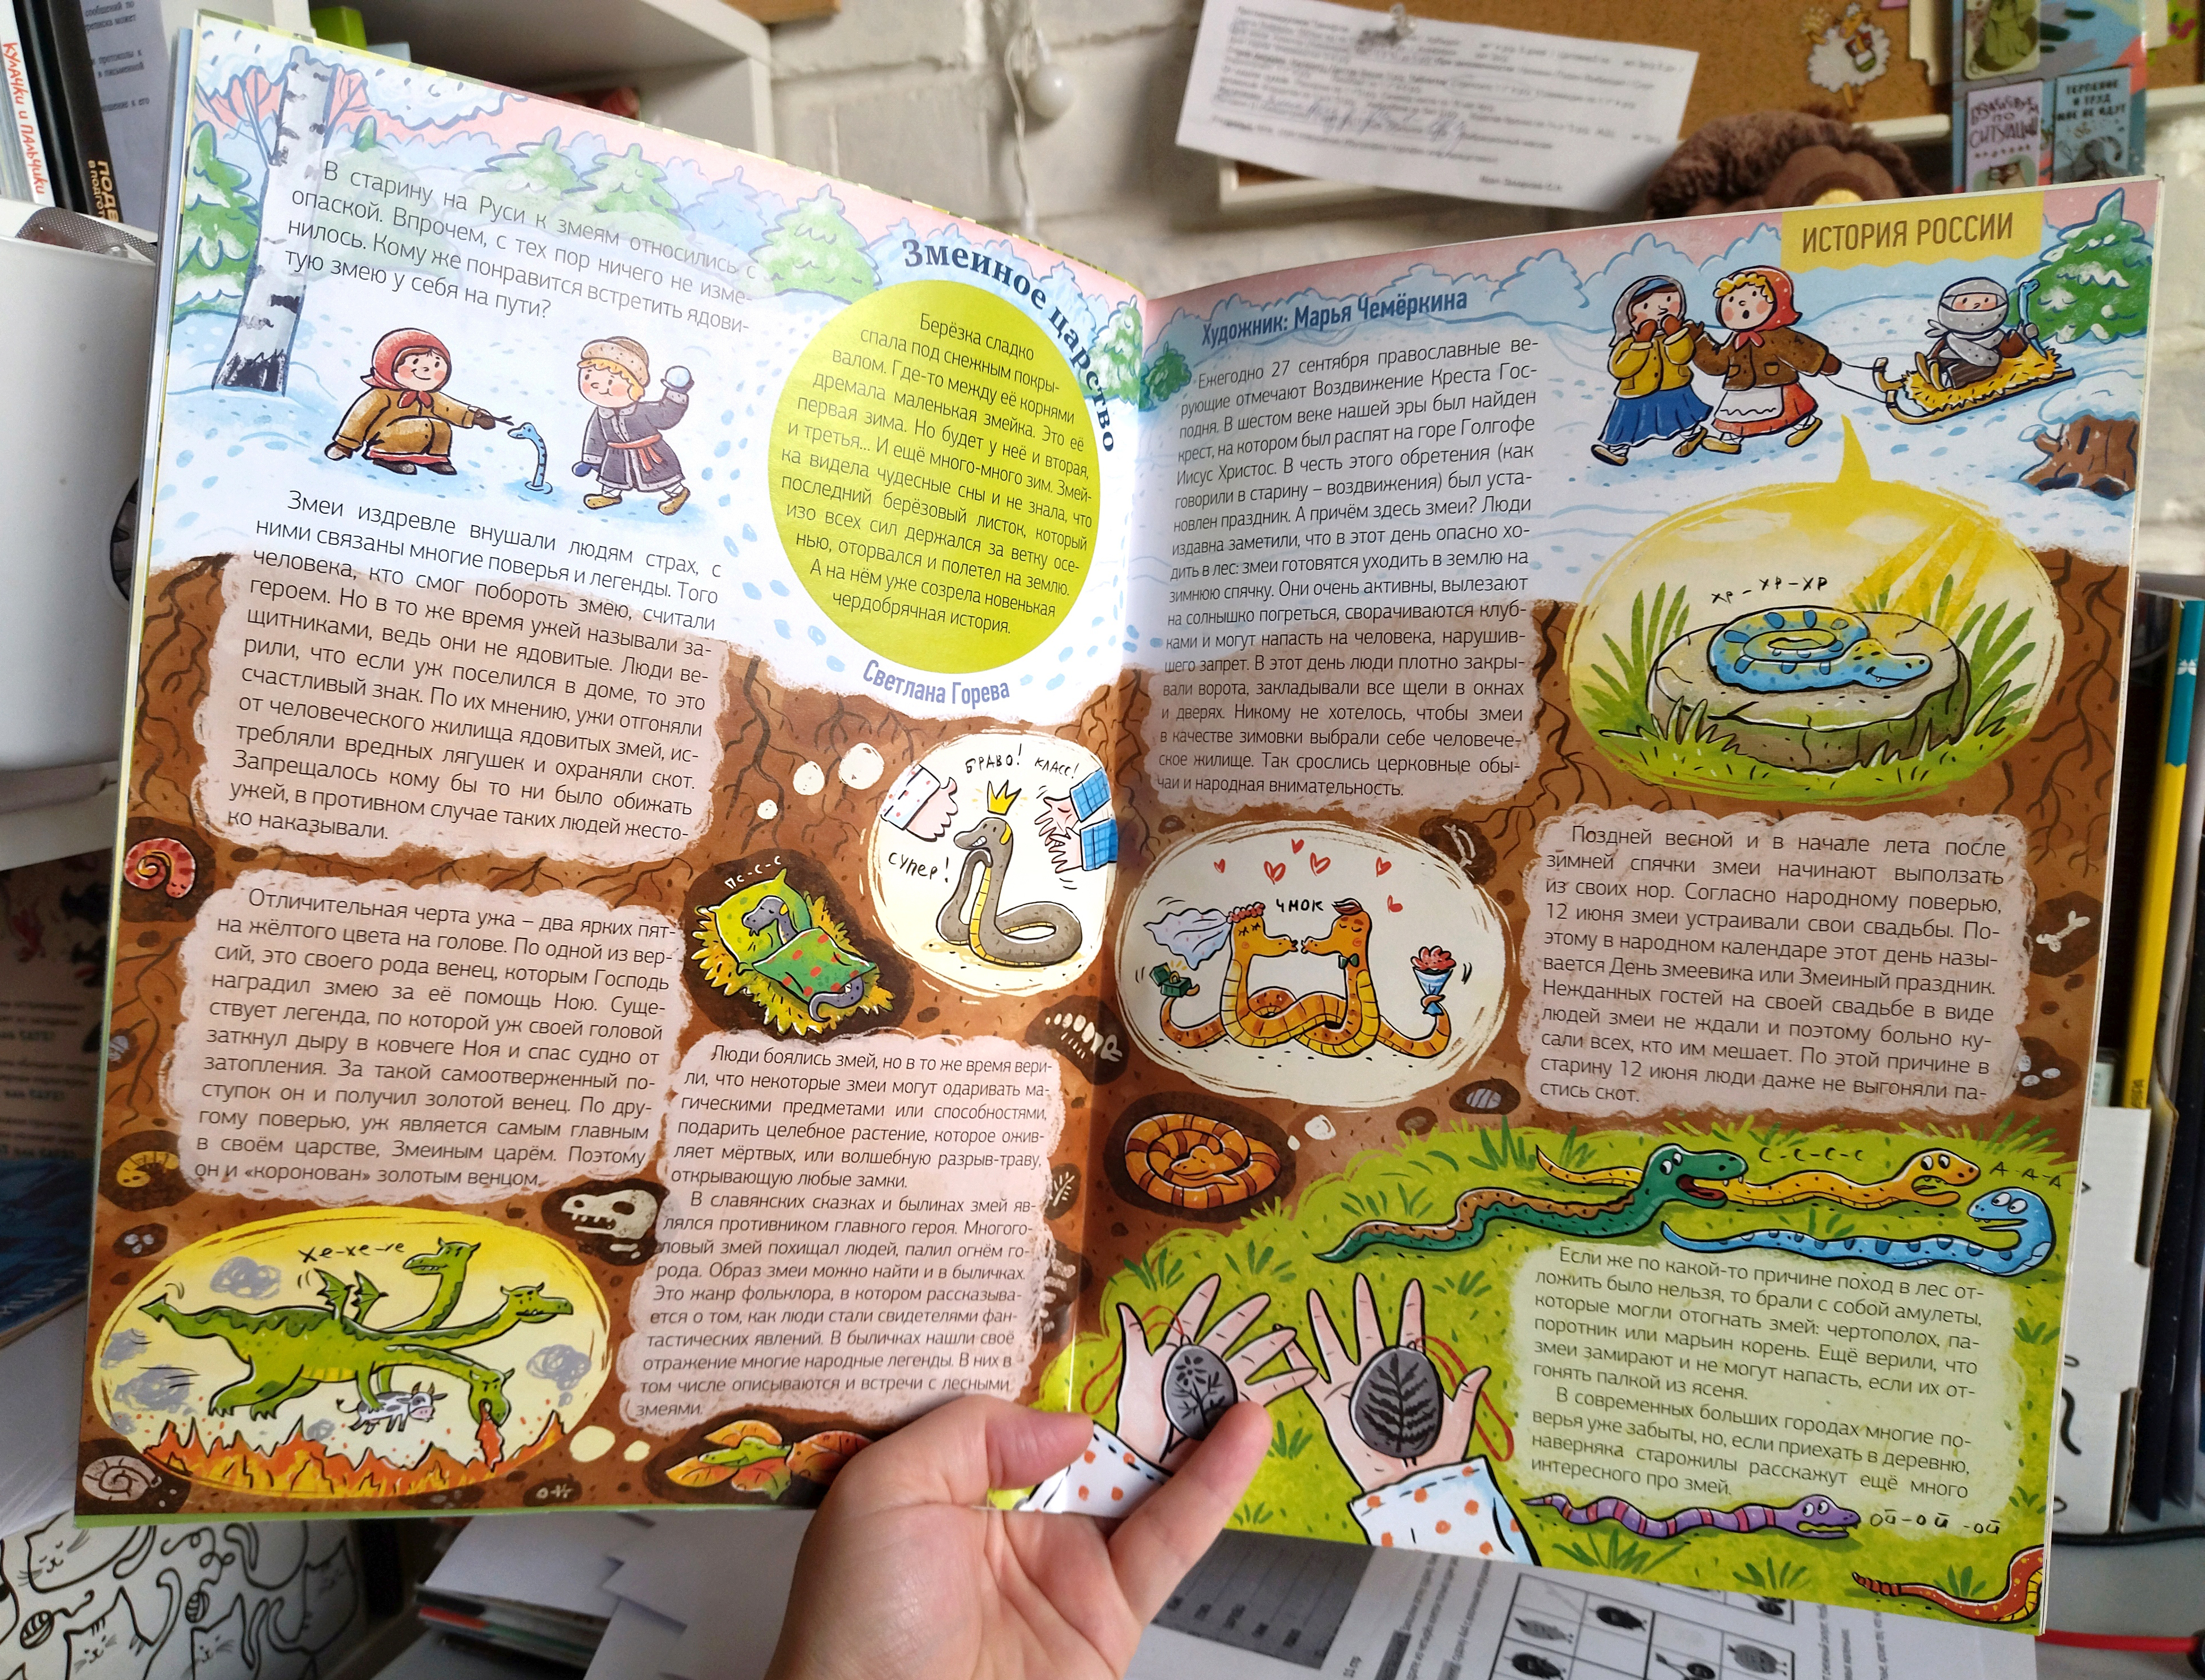 В старину на Руси к змеям относились с
опаской. Впрочем, с тех пор ничего не изме-
нилось. Кому же понравится встретить ядови-
тую змею у себя на пути?
Змеиное царство
Берёзка сладко
спала под снежным покры-
валом. Где-то между её корнями
дремала маленькая змейка. Это её
первая зима. Но будет у неё и вторая,
и третья... И ещё много-много зим. Змей-
ка видела чудесные сны и не знала, что
последний берёзовый листок, который
изо всех сил держался за ветку осе-
нью, оторвался и полетел на землю.
А на нём уже созрела новенькая
чердобрячная история.
Светлана Горева
Змеи издревле внушали людям страх, с
ними связаны многие поверья и легенды. Того
человека, кто смог побороть змею, считали
героем. Но в то же время ужей называли за-
щитниками, ведь они не ядовитые. Люди ве-
рили, что если уж поселился в доме, то это
счастливый знак. По их мнению, ужи отгоняли
от человеческого жилища ядовитых змей, ис-
требляли вредных лягушек и охраняли скот.
Запрещалось кому бы то ни было обижать
ужей, в противном случае таких людей жесто-
ко наказывали.
БРАВО! КЛАСС!
СУПЕР!
ПС-С-С
Отличительная черта ужа – два ярких пят-
на жёлтого цвета на голове. По одной из вер-
сий, это своего рода венец, которым Господь
наградил змею за её помощь Ною. Суще-
ствует легенда, по которой уж своей головой
заткнул дыру в ковчеге Ноя и спас судно от
затопления. За такой самоотверженный по-
ступок он и получил золотой венец. По дру-
гому поверью, уж является самым главным
в своём царстве, Змеиным царём. Поэтому
он и «коронован» золотым венцом.
Хе-хе-хе
Люди боялись змей, но в то же время вери-
ли, что некоторые змеи могут одаривать ма-
гическими предметами или способностями,
подарить целебное растение, которое ожив-
ляет мёртвых, или волшебную разрыв-траву,
открывающую любые замки.
В славянских сказках и былинах змей яв-
лялся противником главного героя. Многого-
ловый змей похищал людей, палил огнём го-
рода. Образ змеи можно найти и в быличках.
Это жанр фольклора, в котором рассказыва-
ется о том, как люди стали свидетелями фан-
тастических явлений. В быличках нашли своё
отражение многие народные легенды. В них в
том числе описываются и встречи с лесными
змеями.
ИСТОРИЯ РОССИИ
Художник: Марья Чемёркина
Ежегодно 27 сентября православные ве-
рующие отмечают Воздвижение Креста Гос-
подня. В шестом веке нашей эры был найден
крест, на котором был распят на горе Голгофе
Иисус Христос. В честь этого обретения (как
говорили в старину – воздвижения) был уста-
новлен праздник. А причём здесь змеи? Люди
издавна заметили, что в этот день опасно хо-
дить в лес: змеи готовятся уходить в землю на
зимнюю спячку. Они очень активны, вылезают
на солнышко погреться, сворачиваются клуб-
ками и могут напасть на человека, нарушив-
шего запрет. В этот день люди плотно закры-
вали ворота, закладывали все щели в окнах
и дверях. Никому не хотелось, чтобы змеи
в качестве зимовки выбрали себе человече-
ское жилище. Так срослись церковные обы-
чаи и народная внимательность.
ХР-ХР-ХР
ЧМОК
Поздней весной и в начале лета после
зимней спячки змеи начинают выползать
из своих нор. Согласно народному поверью,
12 июня змеи устраивали свои свадьбы. По-
этому в народном календаре этот день назы-
вается День змеевика или Змеиный праздник.
Нежданных гостей на своей свадьбе в виде
людей змеи не ждали и поэтому больно ку-
сали всех, кто им мешает. По этой причине в
старину 12 июня люди даже не выгоняли па-
стись скот.
С-С-С-С
А-А-А
Если же по какой-то причине поход в лес от-
ложить было нельзя, то брали с собой амулеты,
которые могли отогнать змей: чертополох, па-
поротник или марьин корень. Ещё верили, что
змеи замирают и не могут напасть, если их от-
гонять палкой из ясеня.
В современных больших городах многие по-
верья уже забыты, но, если приехать в деревню,
наверняка старожилы расскажут ещё много
интересного про змей.
ОЙ-ОЙ-ОЙ
КУЛАЧКИ и ПАЛЬЧИКИ
ТЕРПЕНИЕ
И ТРУД